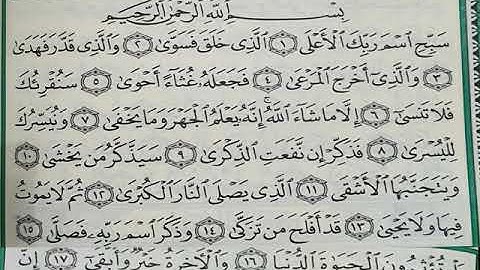 بِسْمِ ٱللَّهِ ٱلرَّحْمَٰنِ ٱلرَّحِيمِ
سَبِّحِ ٱسْمَ رَبِّكَ ٱلْأَعْلَى ١ ٱلَّذِى خَلَقَ فَسَوَّىٰ ٢ وَٱلَّذِى قَدَّرَ فَهَدَىٰ
٣ وَٱلَّذِىٓ أَخْرَجَ ٱلْمَرْعَىٰ ٤ فَجَعَلَهُۥ غُثَآءً أَحْوَىٰ ٥ سَنُقْرِئُكَ
فَلَا تَنسَىٰٓ ٦ إِلَّا مَا شَآءَ ٱللَّهُ إِنَّهُۥ يَعْلَمُ ٱلْجَهْرَ وَمَا يَخْفَىٰ ٧ وَنُيَسِّرُكَ
لِلْيُسْرَىٰ ٨ فَذَكِّرْ إِن نَّفَعَتِ ٱلذِّكْرَىٰ ٩ سَيَذَّكَّرُ مَن يَخْشَىٰ ١٠
وَيَتَجَنَّبُهَا ٱلْأَشْقَى ١١ ٱلَّذِى يَصْلَى ٱلنَّارَ ٱلْكُبْرَىٰ ١٢ ثُمَّ لَا يَمُوتُ
فِيهَا وَلَا يَحْيَىٰ ١٣ قَدْ أَفْلَحَ مَن تَزَكَّىٰ ١٤ وَذَكَرَ ٱسْمَ رَبِّهِۦ فَصَلَّىٰ ١٥
تُؤْثِرُونَ ٱلْحَيَوٰةَ ٱلدُّنْيَا ١٦ وَٱلْأَخِرَةُ خَيْرٌ وَأَبْقَىٰٓ ١٧ إِنَّ